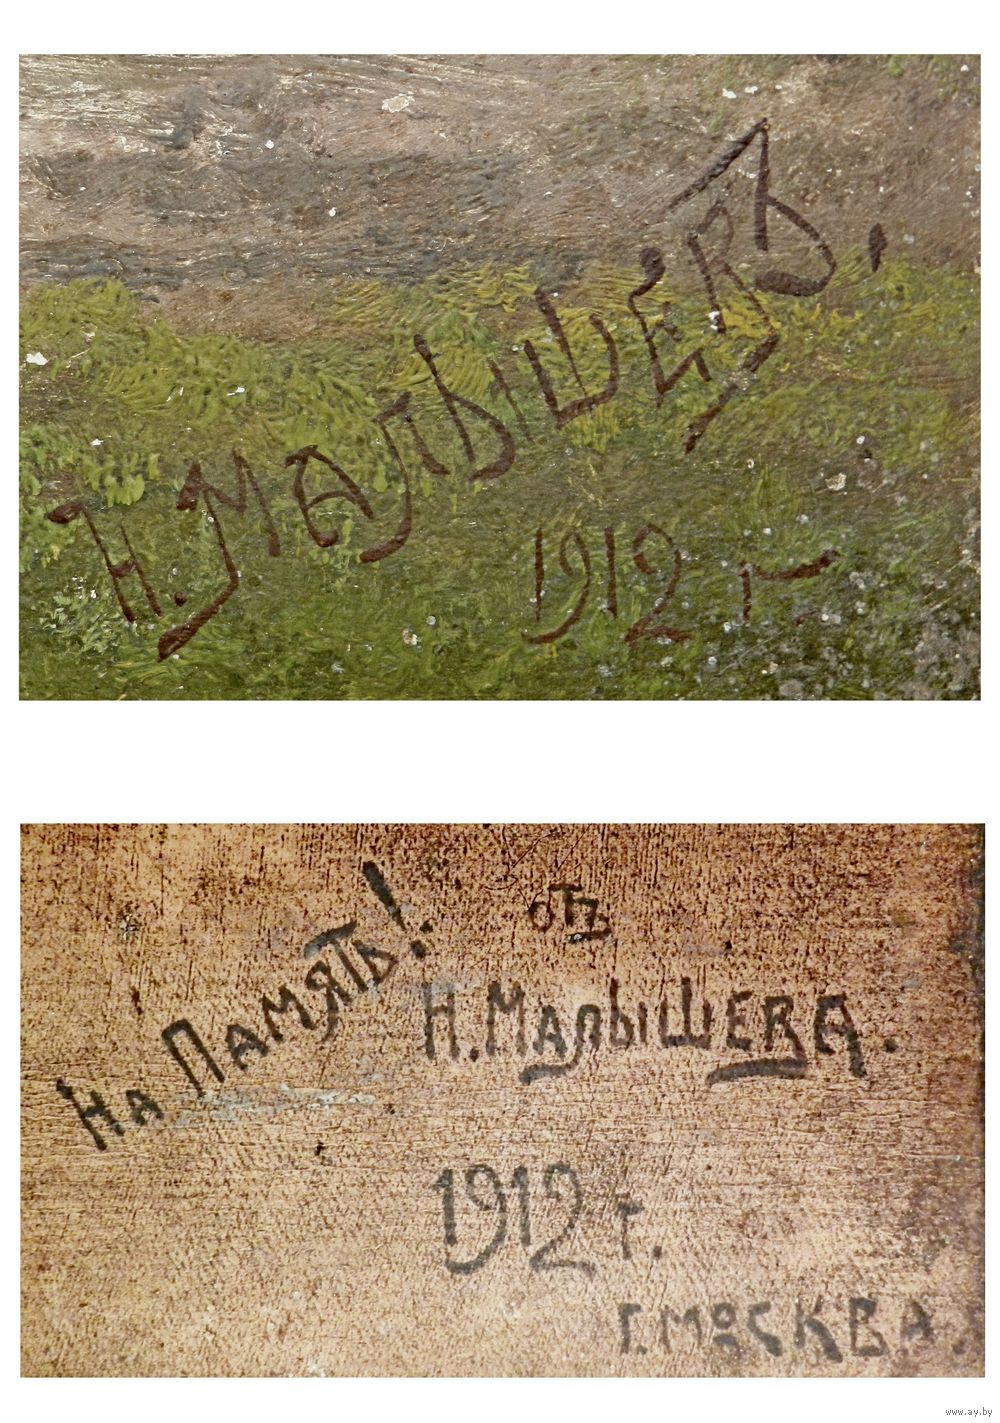 Н. МАЛЫШЕВЪ,
1912 г
На Память!
отъ
Н. Малышева.
1912 г.
г. МОСКВА.
www.ay.by